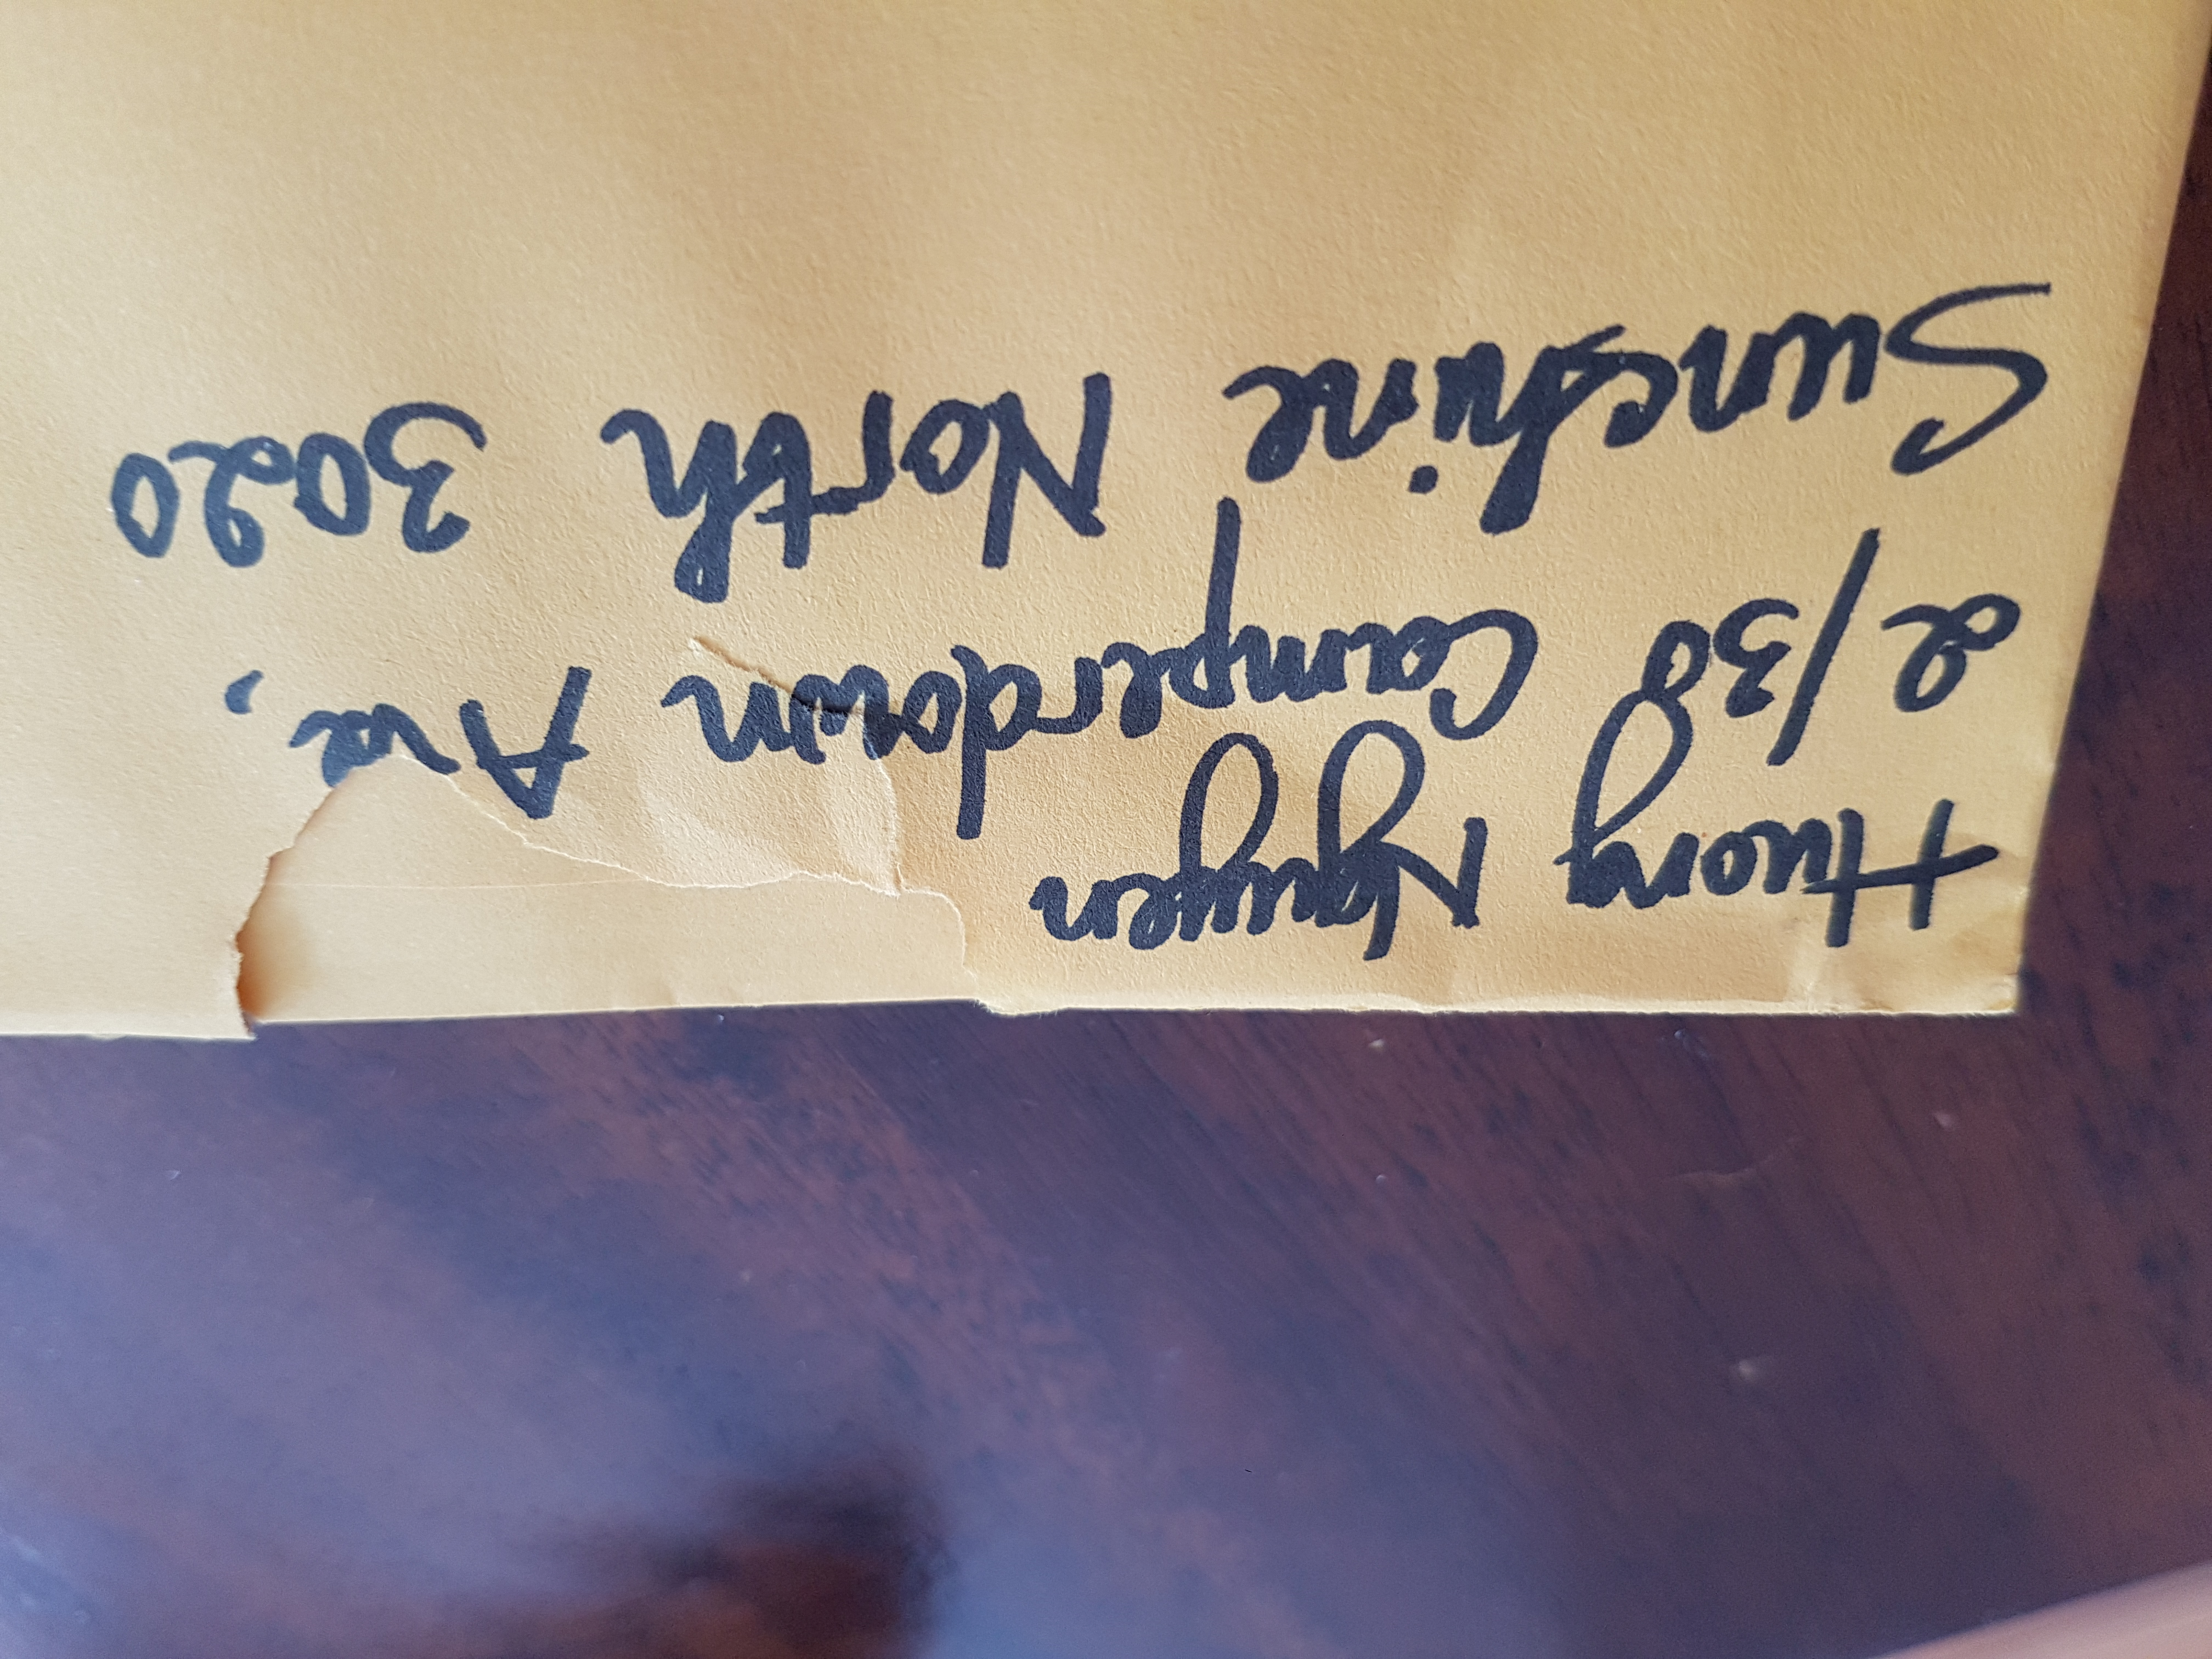 Huong Nguyen
2/38 Camperdown Ave,
Sunshine North 3020